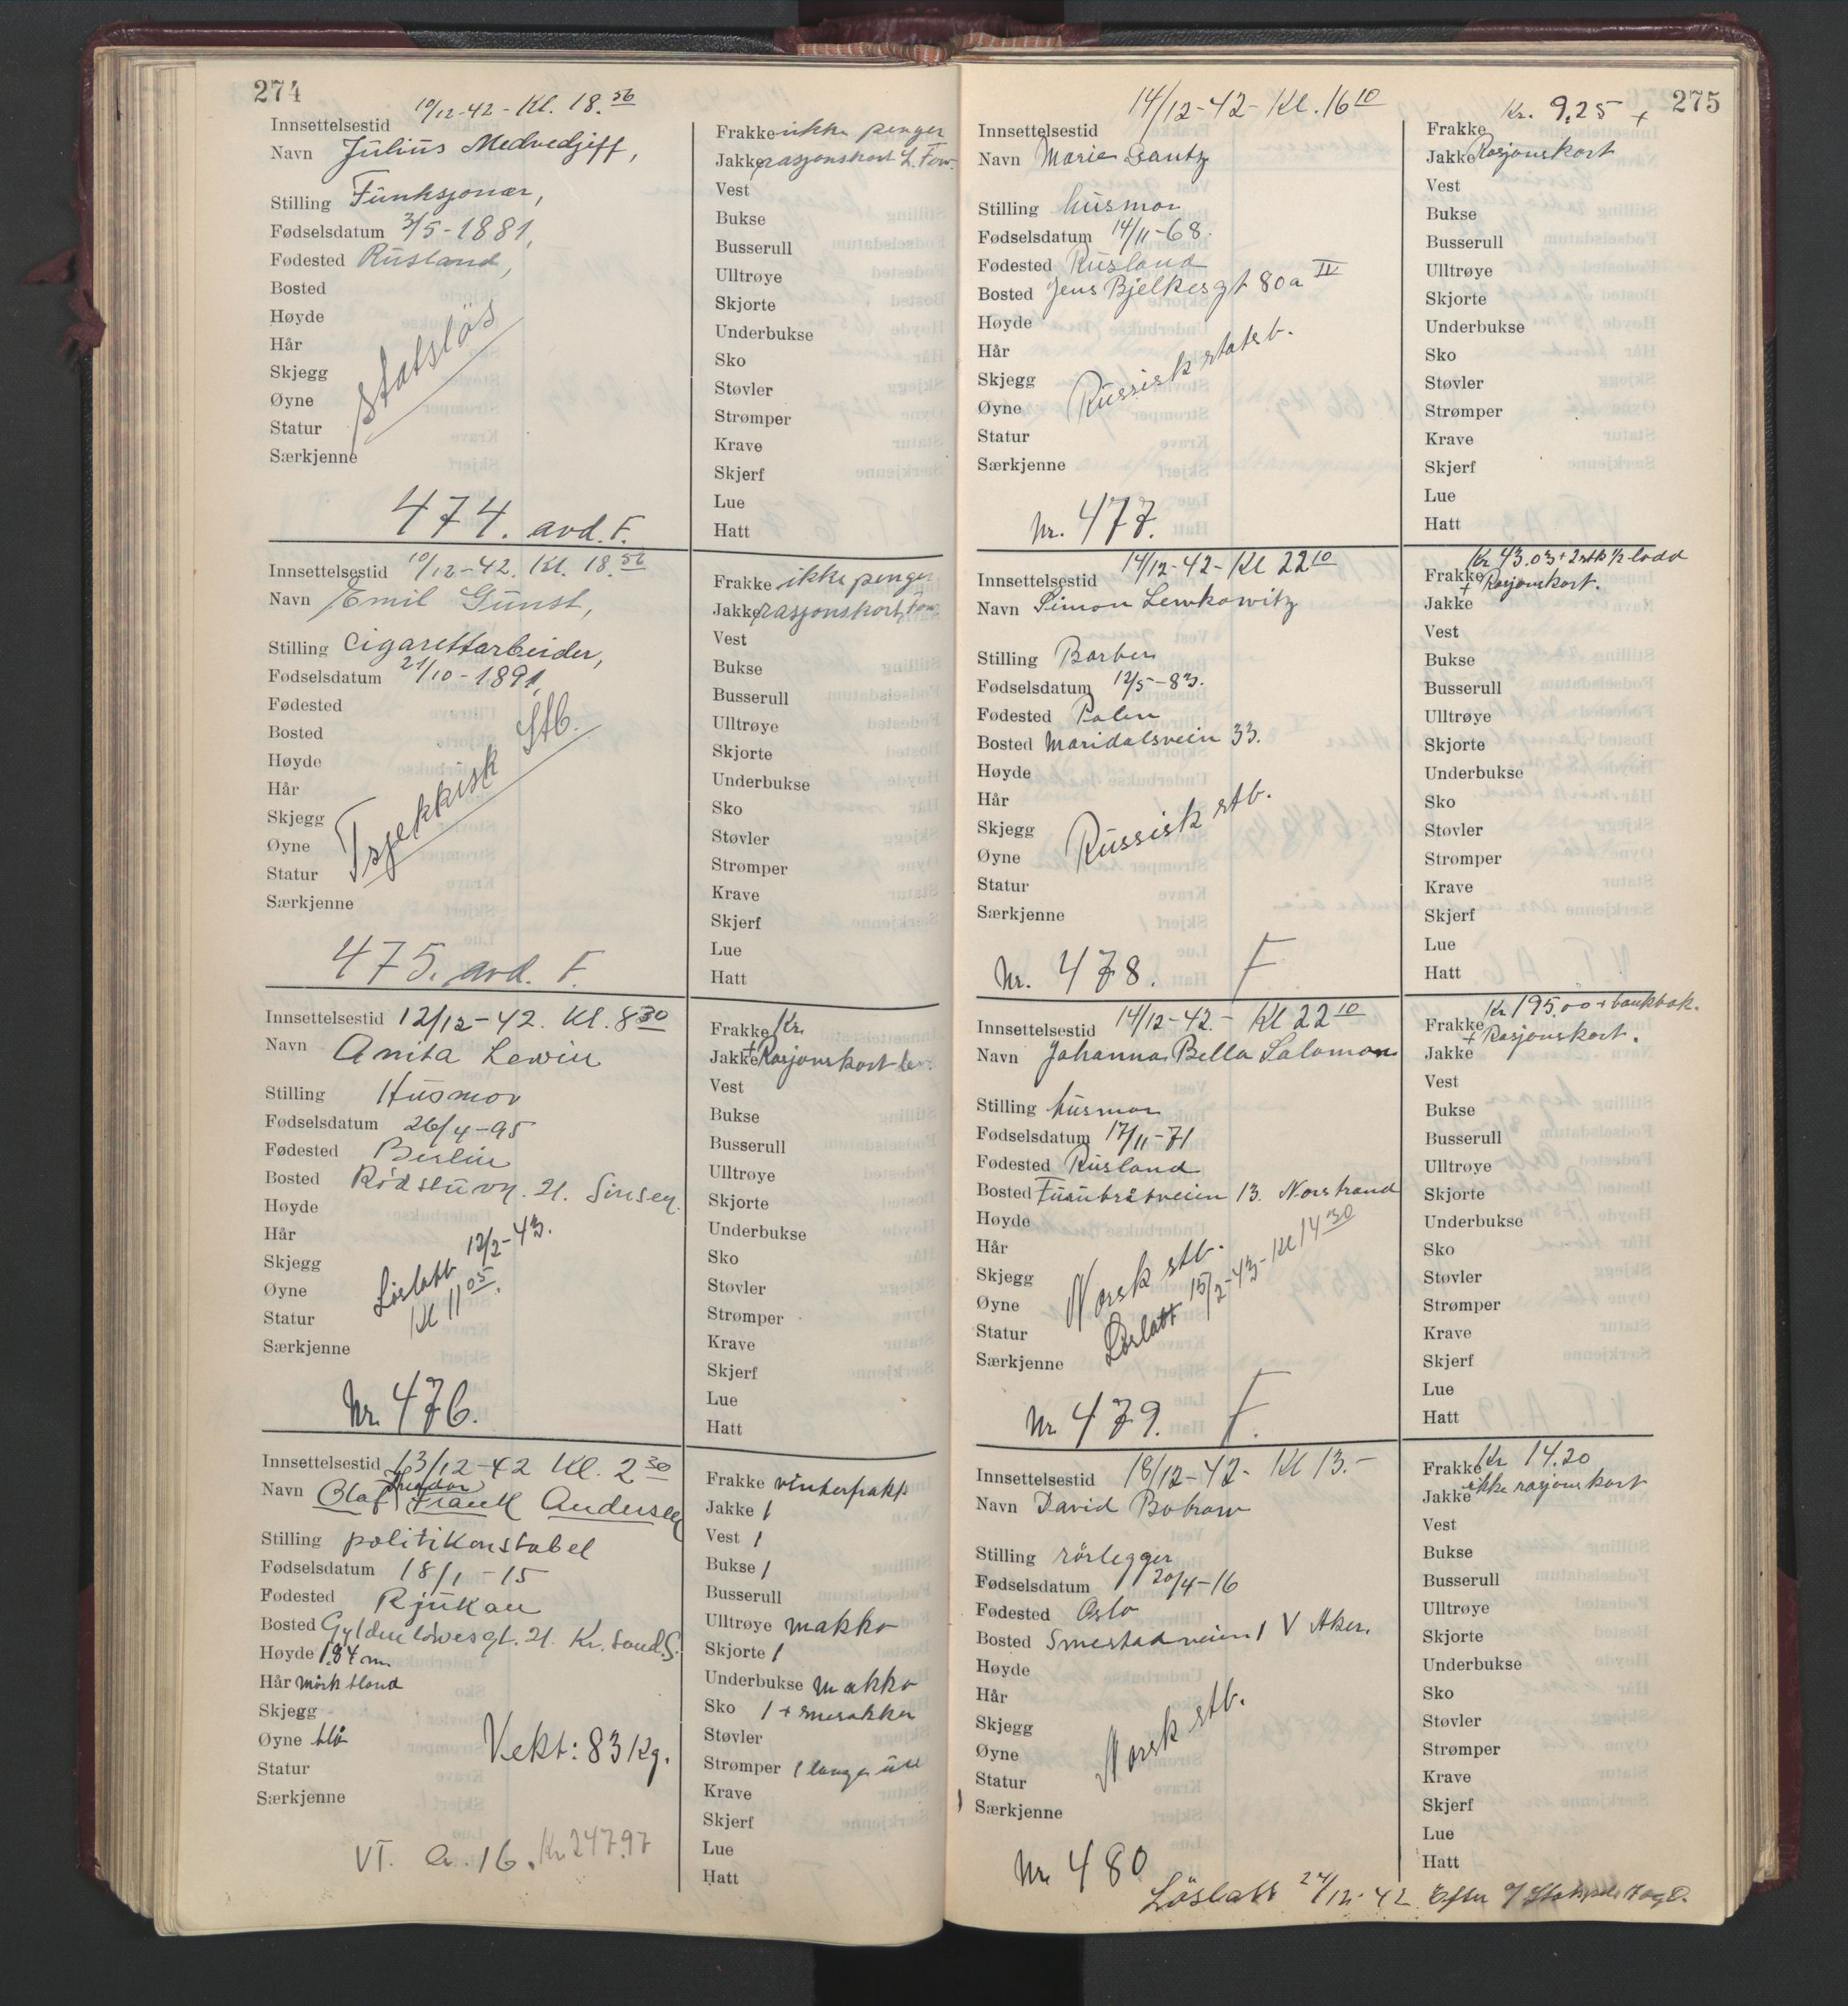 274
Innsettelsestid 10/12-42 - Kl. 18.50
Navn Julius Medvedjeff,
Stilling Funksjonær,
Fødselsdatum 3/5-1881,
Fødested Rusland,
Bosted
Høyde
Hår
Skjegg
Øyne
Statur
Særkjenne
Statsløs
474. avd. F.
Frakke ikke penger
Jakke rasjonskort L. Fow.
Vest
Bukse
Busserull
Ulltrøye
Skjorte
Underbukse
Sko
Støvler
Strømper
Krave
Skjerf
Lue
Hatt
Innsettelsestid 10/12-42. Kl. 18.50
Navn Emil Gunst,
Stilling Cigarettarbeider,
Fødselsdatum 21/10-1891,
Fødested
Bosted
Høyde
Hår
Skjegg
Øyne
Statur
Særkjenne
Tsjekkisk Stb.
475. avd. F.
Frakke ikke penger
Jakke rasjonskort,
Vest
Bukse
Busserull
Ulltrøye
Skjorte
Underbukse
Sko
Støvler
Strømper
Krave
Skjerf
Lue
Hatt
Innsettelsestid 12/12-42. Kl. 8 30
Navn Anita Lewin
Stilling Husmor
Fødselsdatum 26/4-95
Fødested Berlin
Bosted Rödstuvn. 21. Sinsen.
Høyde
Hår
Skjegg
Øyne
Statur
Særkjenne
Löslatt 12/2-43.
Kl 11 05.
Nr. 476.
Frakke Kr.
Jakke + Rasjonskort
Vest
Bukse
Busserull
Ulltrøye
Skjorte
Underbukse
Sko
Støvler
Strømper
Krave
Skjerf
Lue
Hatt
Innsettelsestid 13/12-42 Kl. 2 30
Navn Olaf Frank Andersen
Stilling politikonstabel
Fødselsdatum 18/1-15
Fødested Rjukan
Bosted Gyldenløvesgt. 21. Kr. sand S.
Høyde 1,84 m
Hår mörk blond
Skjegg
Øyne blå
Statur
Særkjenne
Vekt: 83 Kg.
VI. A. 16. Kr 247.97
Frakke vinterfrakk
Jakke 1
Vest 1
Bukse 1
Busserull
Ulltrøye makko
Skjorte 1
Underbukse makko
Sko 1 + snesokker
Støvler
Strømper 1 lange ull
Krave
Skjerf
Lue
Hatt
275
Innsettelsestid 14/12-42 - Kl. 16 10
Navn Marie Santz
Stilling husmor
Fødselsdatum 14/11-68.
Fødested Rusland
Bosted Jens Bjelkesgt 80a IV
Høyde
Hår
Skjegg
Øyne
Statur
Særkjenne
Russisk statsb.
Nr. 477.
Kr. 9,25 +
Frakke
Jakke Rasjonskort
Vest
Bukse
Busserull
Ulltrøye
Skjorte
Underbukse
Sko
Støvler
Strømper
Krave
Skjerf
Lue
Hatt
Innsettelsestid 14/12-42 - Kl 22 10
Navn Simon Lewkowitz
Stilling Barber
Fødselsdatum 12/5-83.
Fødested Polen
Bosted Maridalsveien 33.
Høyde
Hår
Skjegg
Øyne
Statur
Særkjenne
Russisk stb.
Nr. 478. F
Kr 43.03 + 2 stk 1/2 lodd
Frakke + Rasjonskort.
Jakke
Vest
Bukse
Busserull
Ulltrøye
Skjorte
Underbukse
Sko
Støvler
Strømper
Krave
Skjerf
Lue
Hatt
Innsettelsestid 14/12-42. - Kl 22 10
Navn Johanna Bella Salomon
Stilling husmor
Fødselsdatum 17/11-71
Fødested Rusland
Bosted Furubråtveien 13. Norstrand
Høyde
Hår
Skjegg
Øyne
Statur
Særkjenne
Norsk stb.
Löslatt 15/2-43 - Kl 14 30
Nr 479. F.
Kr 195,00 + bankbok.
Frakke + Rasjonskort.
Jakke
Vest
Bukse
Busserull
Ulltrøye
Skjorte
Underbukse
Sko
Støvler
Strømper
Krave
Skjerf
Lue
Hatt
Innsettelsestid 18/12-42 - Kl 13.-
Navn David Bobrow
Stilling rörlegger
Fødselsdatum 20/4-16
Fødested Oslo
Bosted Smestadveien 1 V Aker.
Høyde
Hår
Skjegg
Øyne
Statur
Særkjenne
Norsk stb.
Nr 480
Frakke Kr 14.20
Jakke ikke rasjonskort
Vest
Bukse
Busserull
Ulltrøye
Skjorte
Underbukse
Sko
Støvler
Strømper
Krave
Skjerf
Lue
Hatt
Löslatt 24/12-42 Efter